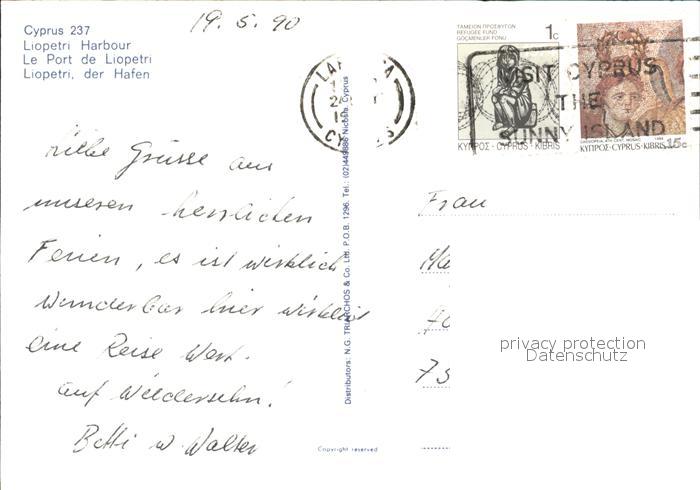 19.5.90
Cyprus 237
Liopetri Harbour
Le Port de Liopetri
Liopetri, der Hafen
ΤΑΜΕΙΟΝ ΠΡΟΣΦΥΓΩΝ
REFUGEE FUND
GÖÇMENLER FONU
1c
ΚΥΠΡΟΣ·CYPRUS·KIBRIS
ΚΥΠΡΟΣ·CYPRUS·KIBRIS 15c
VISIT CYPRUS
THE
SUNNY ISLAND
Liebe Grüsse aus
unseren herrlichen
Ferien, es ist wirklich
Wunderbar hier wirklich
eine Reise Wert.
auf Wiedersehn!
Betti u Walter
Distributors: N.G. TRIARCHOS & Co. Ltd. P.O.B. 1296. Tel.: (02)449886 Nicosia, Cyprus
Copyright reserved
Frau
Ma
75
privacy protection
Datenschutz